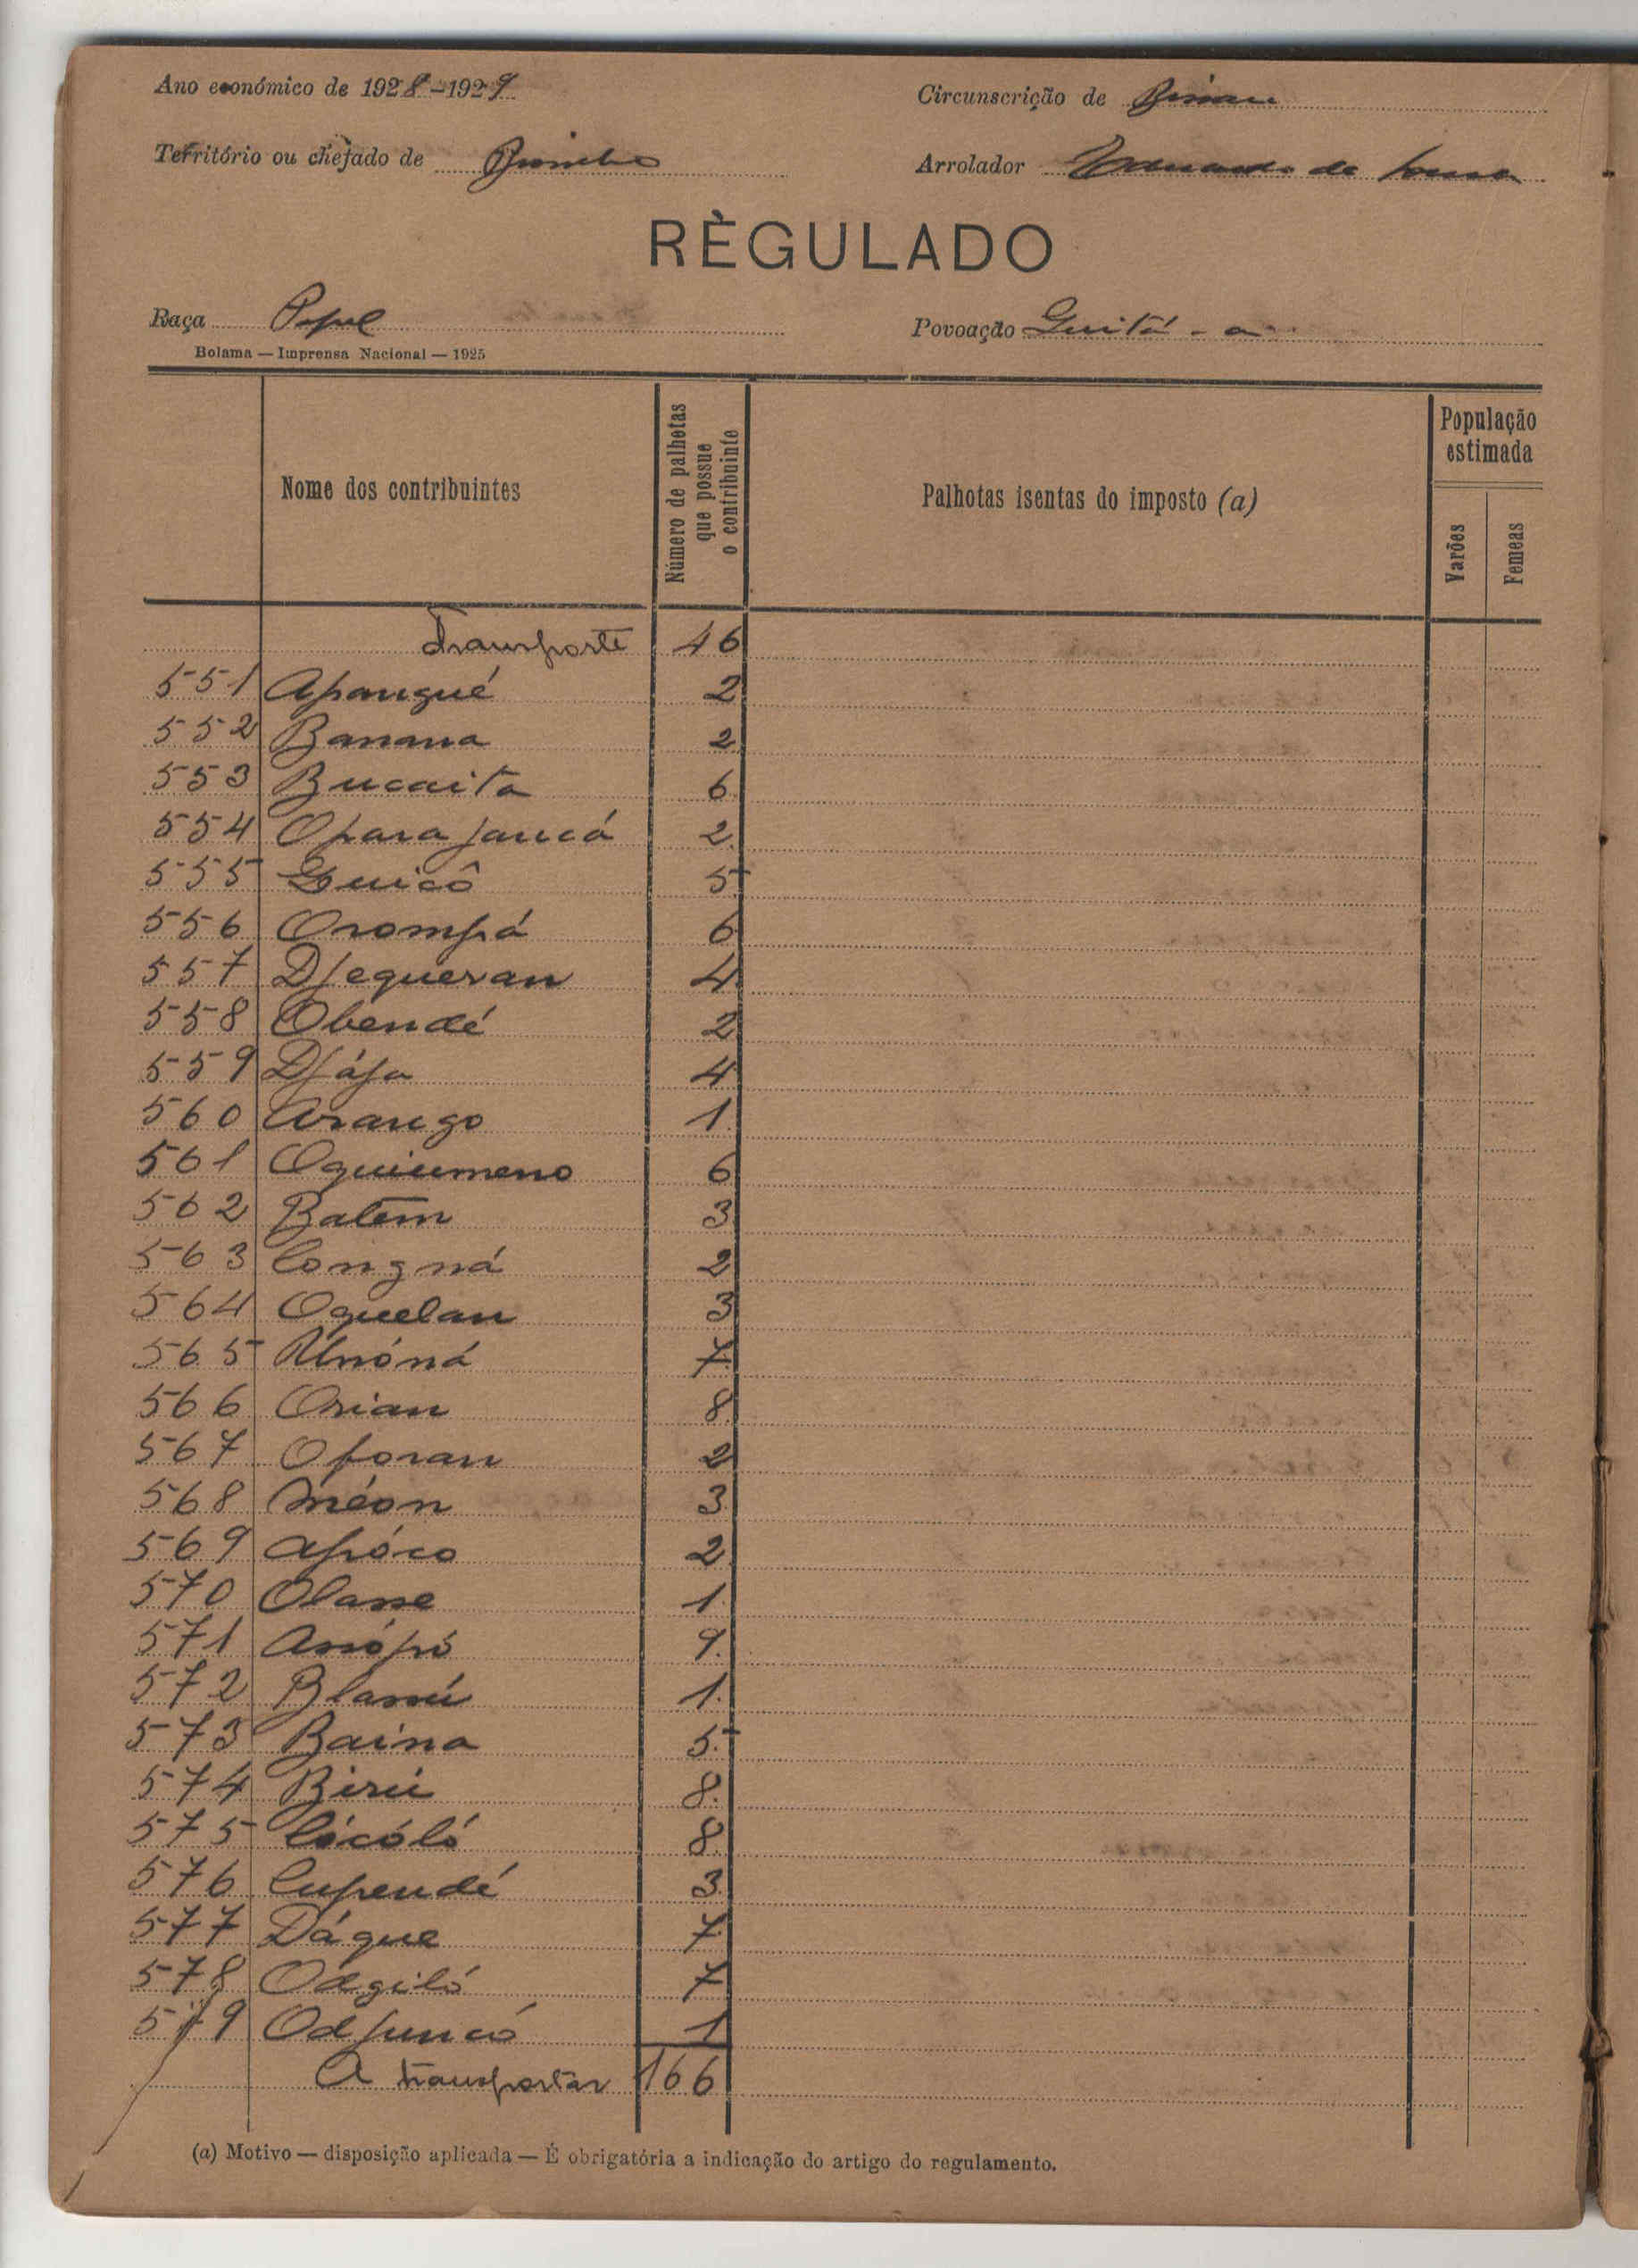 Ano económico de 1928-1929
Circunscrição de Bissau
Território ou chefado de
Arrolador de Sousa
RÈGULADO
Raça Papel
Povoação Guitá - a
Bolama — Imprensa Nacional — 1925
Nome dos contribuintes
Número de palhotas que possue o contribuinte
Palhotas isentas do imposto (a)
População estimada
Varões
Femeas
Transporte 46
551 Apangué 2
552 Banana 2
553 Bucaita 6
554 Opara jancá 2
555 Guicô 5
556 Orompá 6
557 Djequeran 4
558 Obendé 2
559 Djája 4
560 Arango 1
561 Oquiumeno 6
562 Batem 3
563 Congná 2
564 Oquelan 3
565 Unóná 7
566 Orian 8
567 Oforan 2
568 Méon 3
569 Apóco 2
570 Olasse 1
571 Assópó 9
572 Blassú 1
573 Baina 5
574 Birú 8
575 Cócóló 8
576 Cupendé 3
577 Dáque 7
578 Odgiló 7
579 Odjuncó 1
A transportar 166
(a) Motivo — disposição aplicada — É obrigatória a indicação do artigo do regulamento.